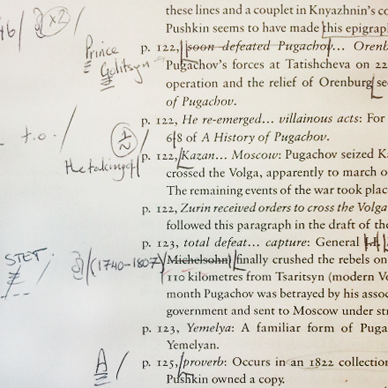 these lines and a couplet in Knyazhnin's co
Pushkin seems to have made this epigrap
x2
Prince
Golitsyn
p. 122, soon defeated Pugachov... Orenb
Pugachov's forces at Tatishcheva on 22
operation and the relief of Orenburg se
of Pugachov.
p. 122, He re-emerged... villainous acts: For
68 of A History of Pugachov.
t.o. /
the taking of
p. 122, Kazan... Moscow: Pugachov seized Ka
crossed the Volga, apparently to march o
The remaining events of the war took plac
p. 122, Zurin received orders to cross the Volga
followed this paragraph in the draft of the
p. 123, total defeat... capture: General
STET
(1740-1807)
Michelsohn) finally crushed the rebels on
110 kilometres from Tsaritsyn (modern Vo
month Pugachov was betrayed by his assoc
government and sent to Moscow under str
p. 123, Yemelya: A familiar form of Puga
Yemelyan.
A /
p. 125, proverb: Occurs in an 1822 collection
Pushkin owned a copy.